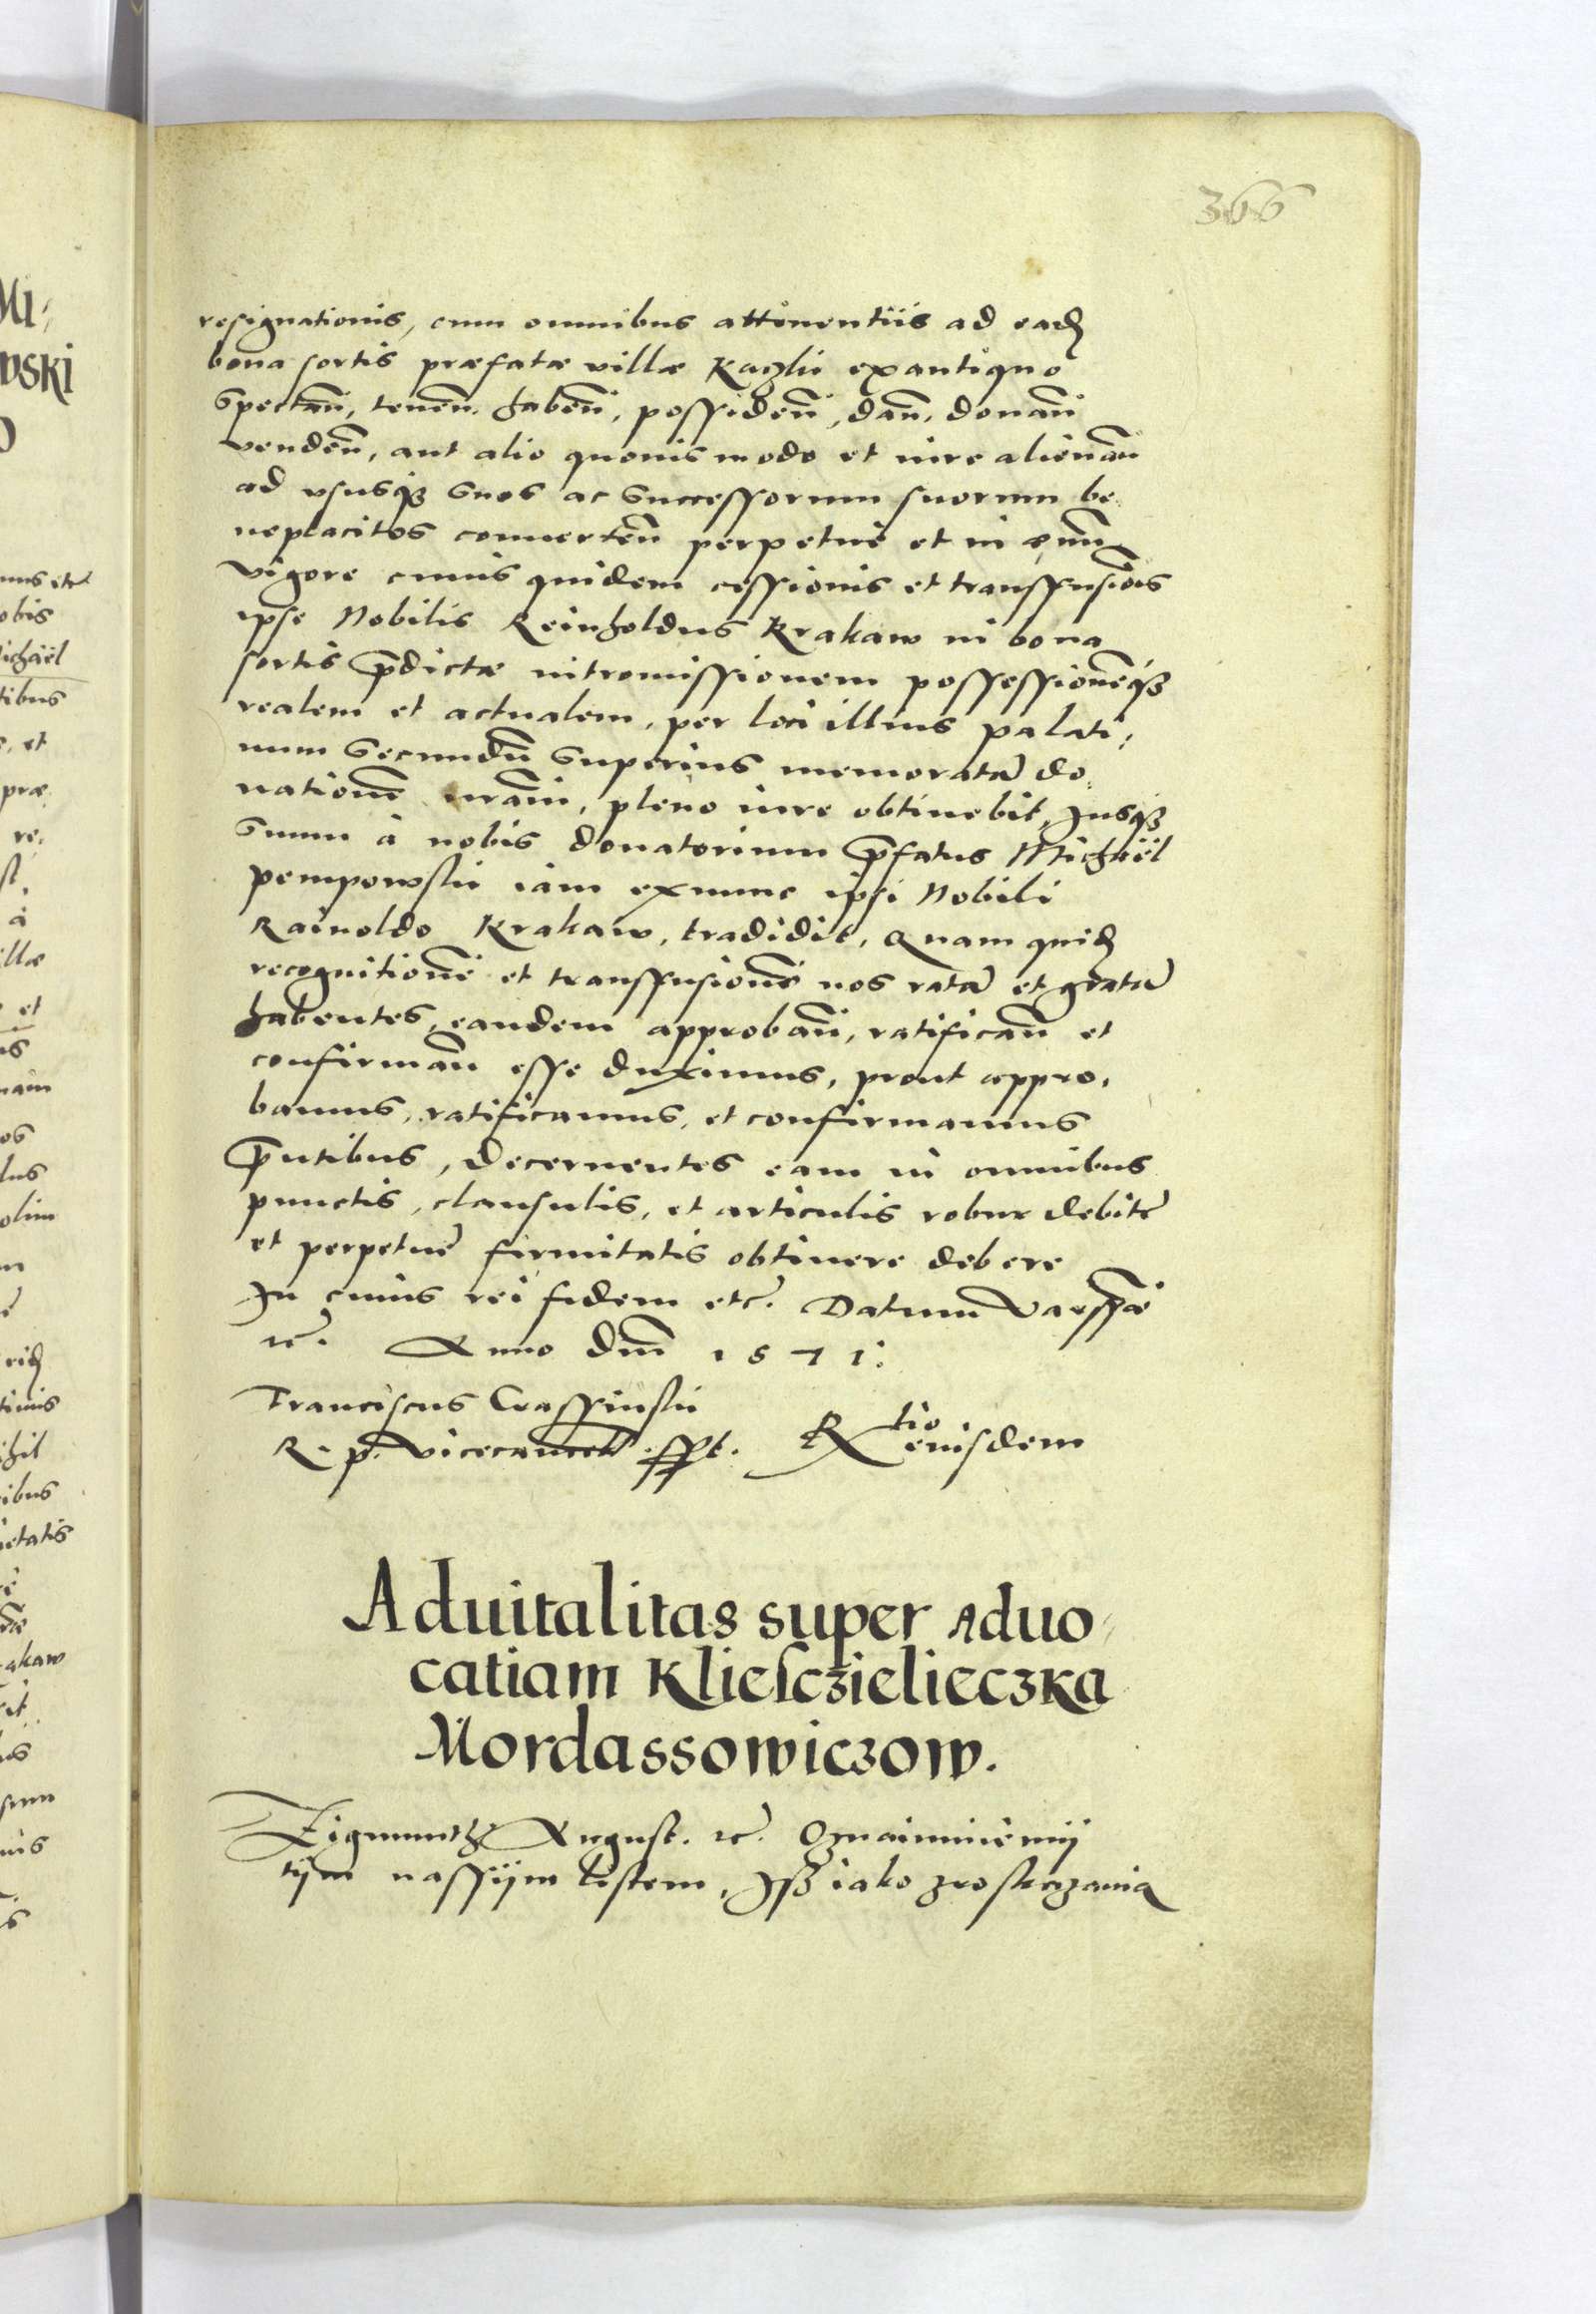 366
resignationis, cum omnibus attinentiis ad eadē
bona sortis præfatæ villæ Kaczki ex antiquo
spectan̄, tenen̄. haben̄, possiden̄, dan̄. donan̄
venden̄, aut alio quouis modo et iure alienan̄
ad vsusq3 suos ac successorum suorum be
neplacitos conuerten̄ perpetue et in æuū
vigore cuius quidem cessionis et transfusiōis
ipse Nobilis Reinholdus Krakaw in bona
sortis p̄dictæ intromissionem possessionēq3
realem et actualem, per loci illius palati:
num secundū superius memoratā do
nationē nr̄am, pleno iure obtinebit, Jusq3
suum à nobis donatorium p̄fatus Michaël
Pempowski iam exnunc ipsi Nobili
Rainoldo Krakaw, tradidit, Quam quidē
recognitionē et transfusionē nos ratā et gratā
habentes, eandem approban̄, ratifican̄ et
confirman̄ esse duximus, prout appro,
bamus, ratificamus, et confirmamus
p̄ntibus, decernentes eam in omnibus
punctis, clausulis, et articulis robur debitē
et perpetuē firmitatis obtinere debere
In cuius rei fidem etc. Datum Varssꝫæ
etc. Anno Dn̄i 1571:
Franciscus Crassinski
R. p. Vicecancell. sspt. R tio eiusdem
Aduitalitas super Aduo
catiam Kliesczielieczka
Mordassowiczow.
Zigmunth August. etc. Oznaimuiemij
tijm nassijm listem, Jß iako z roskazania